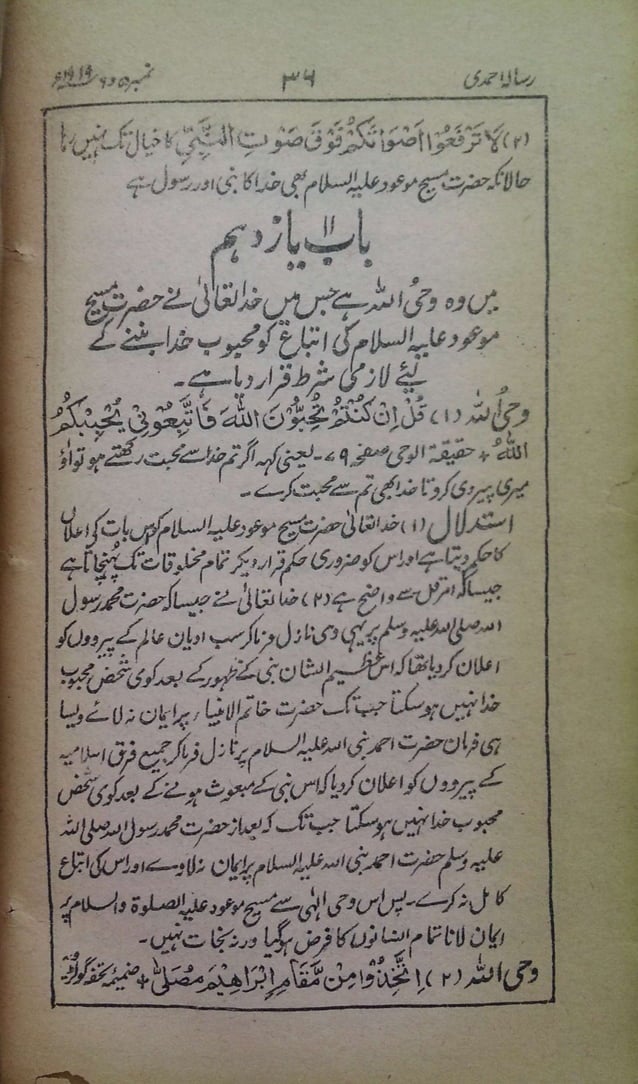 رسالہ احمدی ۳۶ نمبر ۵ و ۶ ۱۹۱۹ء
(۲) لَا تَرْفَعُوْا اَصْوَاتَكُمْ فَوْقَ صَوْتِ النَّبِيِّ کا خیال تک نہیں رہا
حالانکہ حضرت مسیح موعود علیہ السلام بھی خدا کا نبی اور رسول ہے
باب ۱۱ یازدہم
میں وہ وحیُ اللہ ہے جس میں خدا تعالیٰ نے حضرت مسیح
موعود علیہ السلام کی اتباع کو محبوب خدا بننے کے
لیٔے لازمی شرط قرار دیا ہے۔
وحیُ اللہ (۱) قُلْ اِنْ كُنْتُمْ تُحِبُّوْنَ اللهَ فَاتَّبِعُوْنِيْ يُحْبِبْكُمُ
اللهُ + حقیقۃ الوحی صفحہ ۷۹۔ یعنی کہہ اگر تم خدا سے محبت رکھتے ہو تو آؤ
میری پیروی کرو تا خدا بھی تم سے محبت کرے۔
استدلال (۱) خدا تعالیٰ حضرت مسیح موعود علیہ السلام کو اس بات کی اعلان
کا حکم دیتا ہے اور اس کو ضروری حکم قرار دیکر تمام مخلوقات تک پہُنچاتا ہے
جیسا کہ امر قل سے واضح ہے (۲) خدا تعالیٰ نے جیسا کہ حضرت محمد رسول
اللہ صلی اللہ علیہ وسلم پر یہی وحی نازل فرما کر سب ادیان عالم کے پیرووں کو
اعلان کر دیا تھا کہ اس عظیم الشان نبی کے ظہور کے بعد کوی شخص محبوب
خدا نہیں ہو سکتا جب تک حضرت خاتم الانبیاء پر ایمان نہ لائے ویسا
ہی فرمان حضرت احمد نبی اللہ علیہ السلام پر نازل فرما کر جمیع فرق اسلامیہ
کے پیرووں کو اعلان کر دیا کہ اس نبی کے مبعوث ہونے کے بعد کوی شخص
محبوب خدا نہیں ہو سکتا جب تک کہ بعد از حضرت محمد رسول اللہ صلی اللہ
علیہ وسلم حضرت احمد نبی اللہ علیہ السلام پر ایمان نہ لاوے اور اس کی اتباع
کامل نہ کرے۔ پس اس وحی الٰہی سے مسیح موعود علیہ الصلوۃ والسلام پر
ایمان لانا تمام انسانوں کا فرض ہو گیا ورنہ نجات نہیں۔
وحی اللہ (۲) اِتَّخِذُوْا مِنْ مَّقَامِ اِبْرَاهِيْمَ مُصَلًّى + ضمیمہ تحفہ گولڑویہ